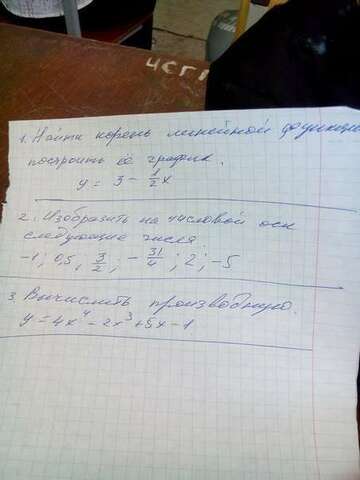 ЧСГГ
1. Найти корень линейной функции
построить её график.
y = 3 - 1/2 x
2. Изобразить на числовой оси
следующие числа:
-1; 0,5, 3/2; - 31/4; 2; -5
3. Вычислить производную.
y = 4x⁴ - 2x³ + 5x - 1